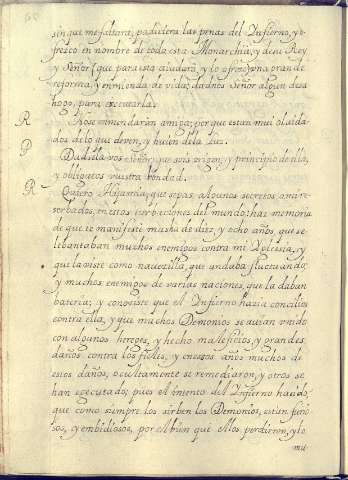 sin que me faltara, padeciera las penas del Infierno, y o-
fresco en nombre de toda esta Monarchia, y de mi Rey
y Señor (que para esto ciudara, y lo ofrezco) vna grande
reforma, y enmienda de vida, dadnos Señor algun desa
hogo, para executarla.
R No se enmendarán amiga; porque estan mui olvida-
dos de lo que deven, y huien de la luz.
P Dadsela vos Señor, que sois origen, y principio de ella,
y obligueos vuestra bondad.
R Quiero Hija mia, que sepas, algunos secretos ami re-
serbados, en estas disposiciones del mundo; haz memoria
de que te manifesté mas ha de diez, y ocho años, que se
lebantaban muchos enemigos contra mi Yglesia, y
que la viste como navezilla, que andaba fluctuando,
y muchos enemigos de varias naciones, que la daban
bateria; y conosiste que el Infierno hazia concilios
contra ella, y que muchos Demonios se auian vnido
con algunos hereges, y hecho maleficios y grandes
daños contra los fieles, y en estos años muchos de
estos daños, ocultamente se remediaron, y otros se
han executado; pues el intento del Infierno ha sido,
que como siempre los sirben los Demonios, estan furio-
sos, y embidiosos, por el bien que ellos perdieron, y lo
mu